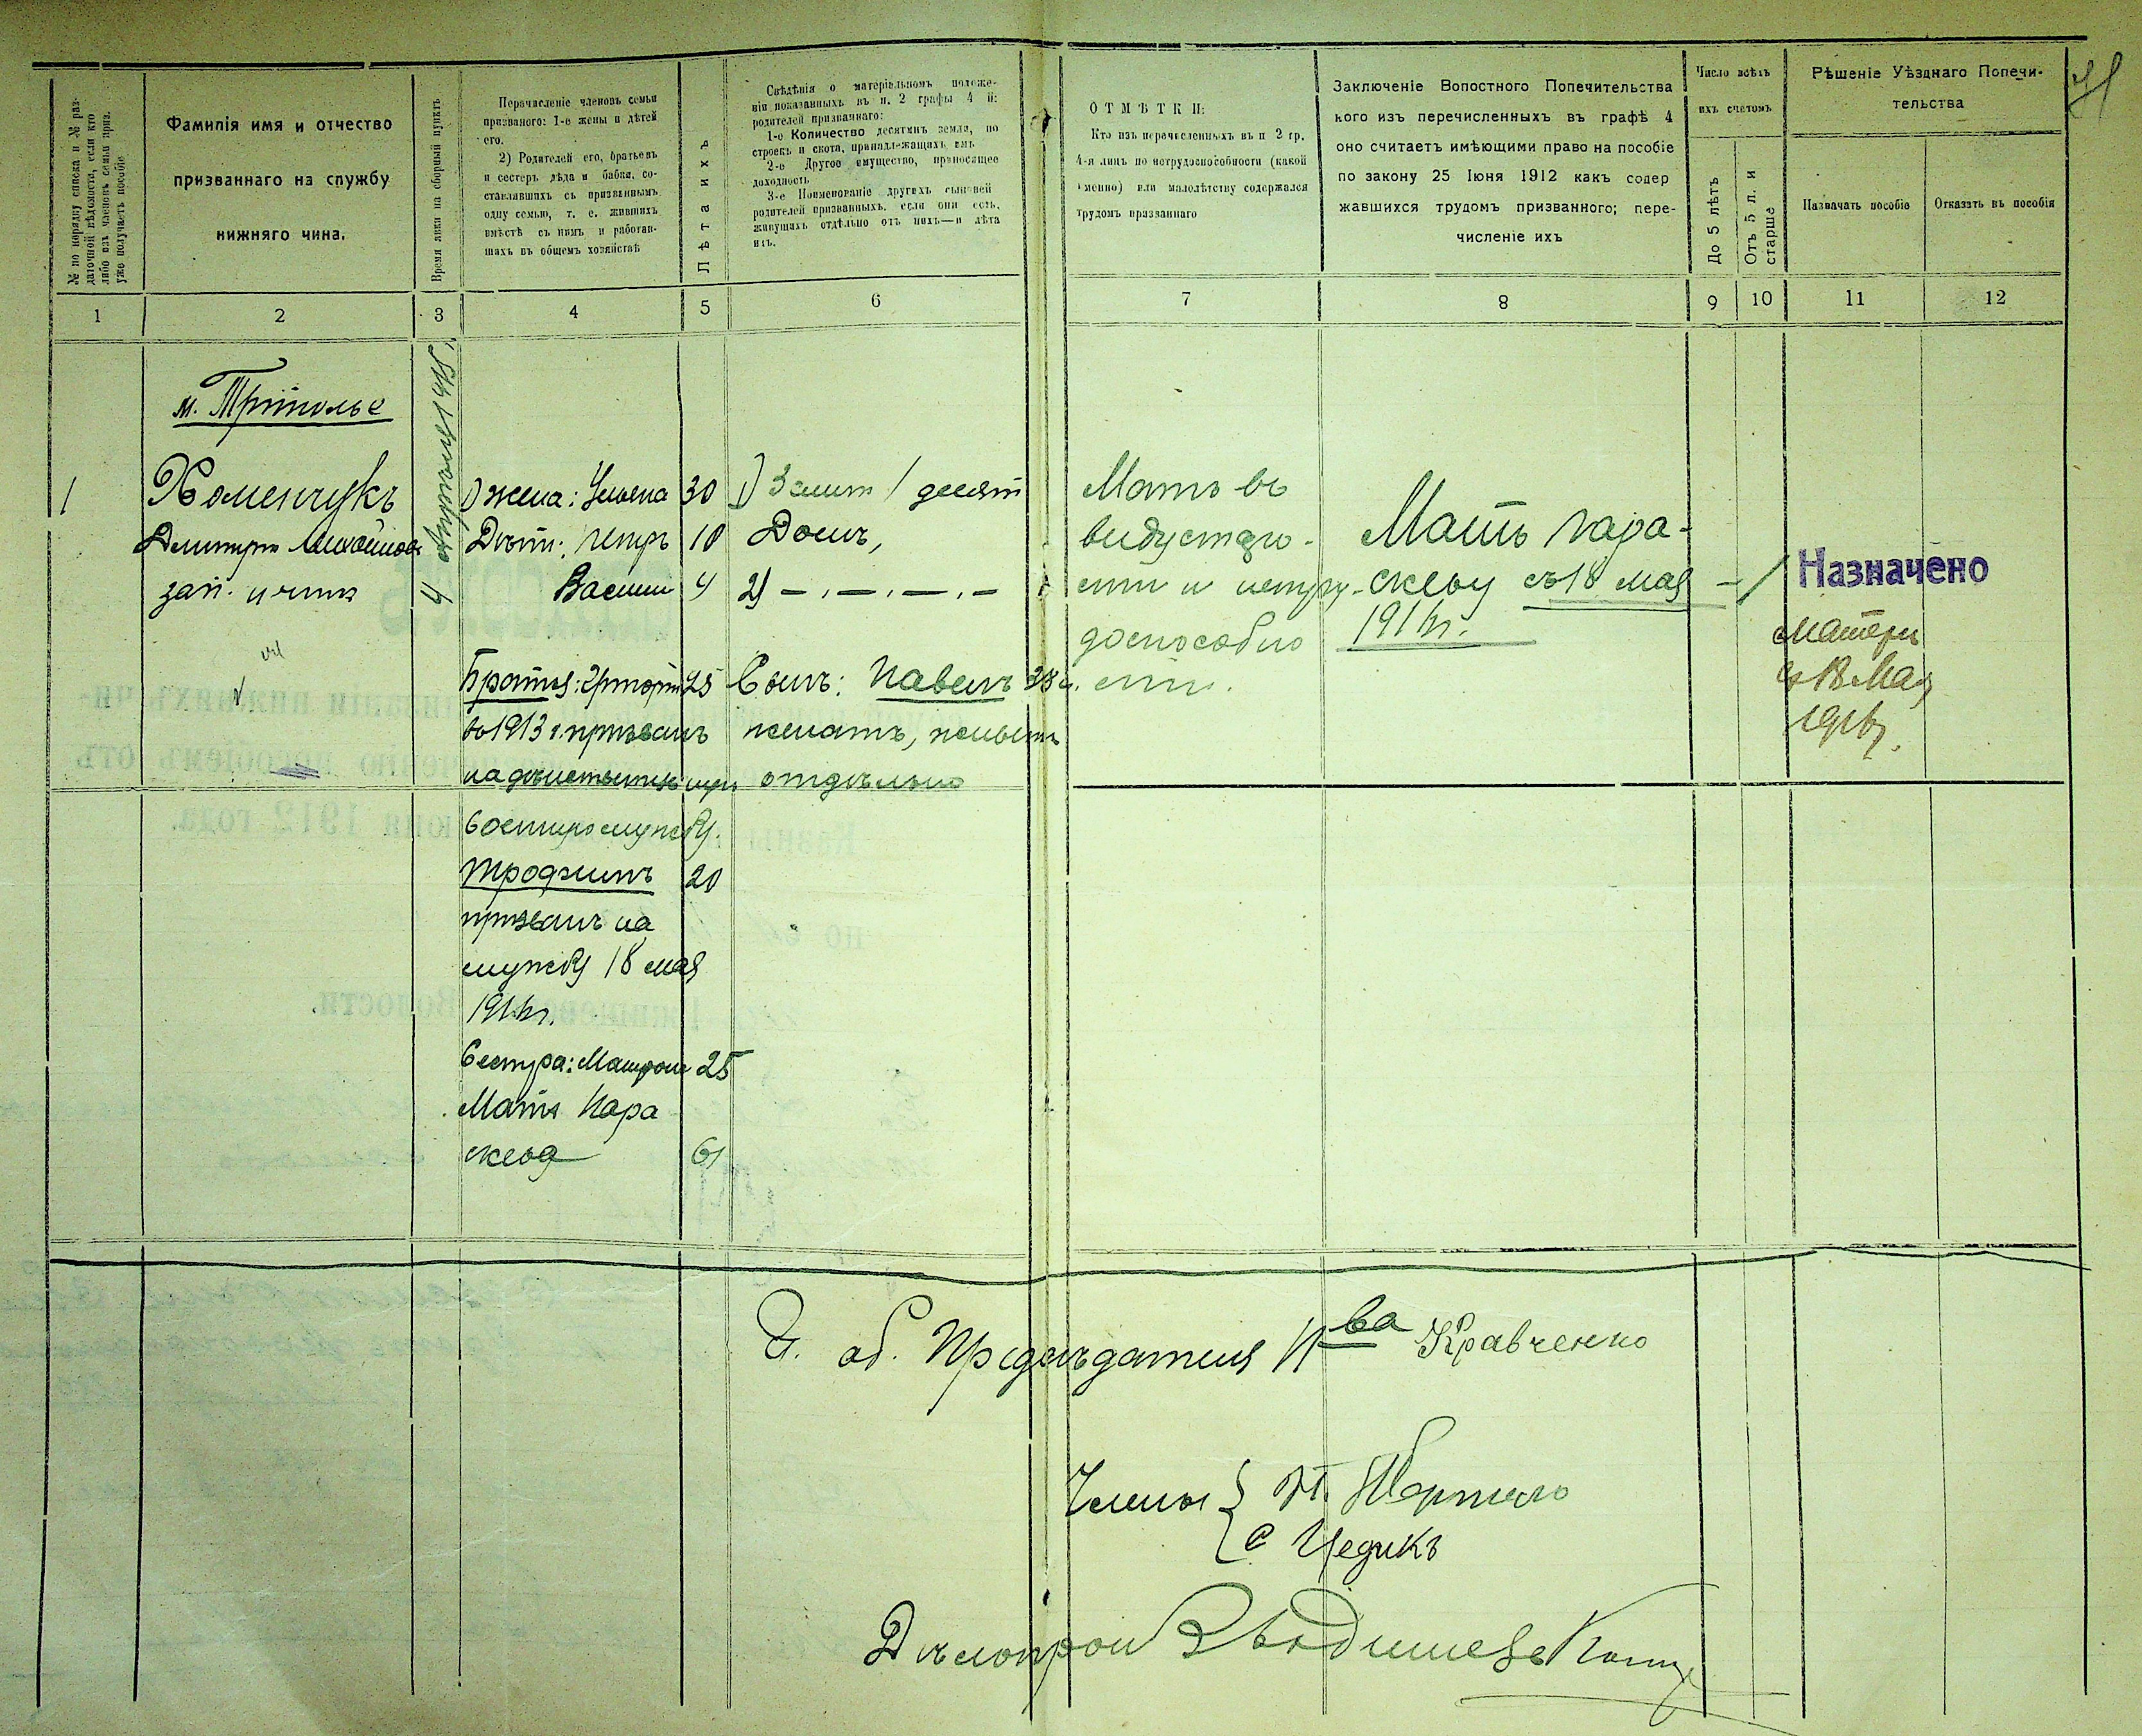 № по порядку списка и № раз-
даточной вѣдомости, если кто
либо изъ членовъ семьи приз.
уже получаетъ пособіе
Фамилія имя и отчество
призваннаго на службу
нижняго чина.
Время явки на сборный пунктъ
Перечисленіе членовъ семьи
призваного: 1-е жены и дѣтей
его.
2) Родителей его, братьевъ
и сестеръ дѣда и бабки, со-
ставлявшихъ съ призваннымъ
одну семью, т. е. жившихъ
вмѣстѣ съ нимъ и работав-
шихъ въ общемъ хозяйствѣ
Лѣта ихъ
Свѣдѣнія о матеріальномъ положе-
ніи показанныхъ въ п. 2 графы 4 й:
родителей призваннаго:
1-е Количество десятинъ земли, по
строекъ и скота, принадлежащихъ имъ
2-е Другое имущество, приносящее
доходность
3-е Поименованіе другихъ сыновей
родителей призванныхъ, если они есть,
живущихъ отдѣльно отъ нихъ—и лѣта
ихъ.
ОТМѢТКИ:
Кто изъ перечисленныхъ въ п 2 гр.
4-я лицъ по нетрудоспособности (какой
именно) или малолѣтству содержался
трудомъ призваннаго
Заключеніе Волостного Попечительства
кого изъ перечисленныхъ въ графѣ 4
оно считаетъ имѣющими право на пособіе
по закону 25 Іюня 1912 какъ содер
жавшихся трудомъ призванного; пере-
численіе ихъ
Число всѣхъ
ихъ счетомъ
До 5 лѣтъ
Отъ 5 л. и
старше
Рѣшеніе Уѣзднаго Попечи-
тельства
Назначать пособіе
Отказать въ пособія
1 2 3 4 5 6 7 8 9 10 11 12
м. Триполье
4 августа 1915 г.
1
Хоменчукъ
Дмитрій
зап.
1) жена: Ульяна 30
Дѣти: Петръ 10
Василий 4
Братья: Григорій 25
въ 1913 г. призванъ
на дѣйствитель ную
военную службу.
Трофимъ 20
призванъ на
службу 18 мая
1916 г.
Сестра: Матрона 25
Мать Пара
скева 61
1) Земли 1 десят
Домъ,
2) — . — . — . —
Сынъ: Павелъ 38 л.
женатъ, живетъ
отдѣльно
Мать въ
виду старо-
сти и нетру-
доспособно
сти.
Мать Пара-
скеву съ 18 мая
1916 г.
— 1
Назначено
Матери
съ 18 Мая
1916 г.
И. об. Предсѣдателя П-ва Кравченко
Члены
С Цедикъ
Дѣлопрои